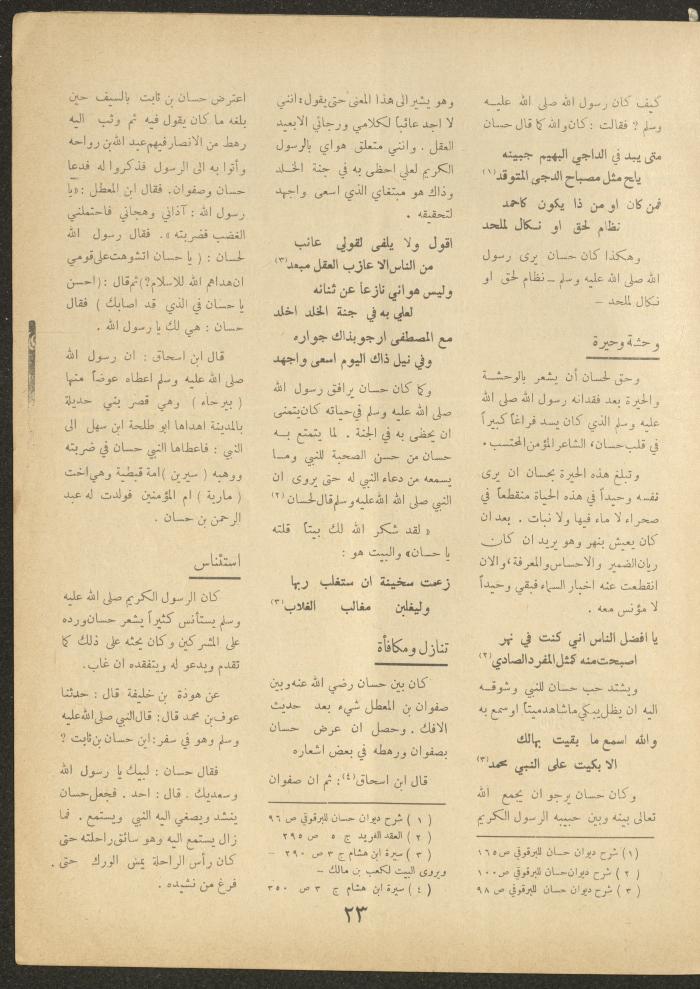 كيف كان رسول الله صلى الله عليه
وسلم ? فقالت : كان والله كما قال حسان
متى يبد في الداجي البهيم جبينه
يلح مثل مصباح الدجى المتوقد (١)
فمن كان او من ذا يكون كاحمد
نظام لحق او نكال لملحد
وهكذا كان حسان يرى رسول
الله صلى الله عليه وسلم ــ نظام لحق او
نكال لملحد –
وحشة وحيرة
وحق لحسان أن يشعر بالوحشة
والحيرة بعد فقدانه رسول الله صلى الله
عليه وسلم الذي كان يسد فراغاً كبيراً
في قلب حسان، الشاعر المؤمن المحتسب .
وتبلغ هذه الحيرة بحسان ان يرى
نفسه وحيداً في هذه الحياة منقطعاً في
صحراء لا ماء فيها ولا نبات . بعد ان
كان يعيش بنهر وهو يريد ان كان
ريان الضمير والاحساس والمعرفة، والان
انقطعت عنه اخبار السماء فبقي وحيداً
لا مؤنس معه .
يا افضل الناس اني كنت في نهر
اصبحت منه كمثل المفرد الصادي (٢)
ويشتد حب حسان للنبي وشوقه
اليه ان يظل يبكي ما شاهد ميتاً او سمع به
والله اسمع ما بقيت بهالك
الا بكيت على النبي محمد (٣)
وكان حسان يرجو ان يجمع الله
تعالى بينه وبين حبيبه الرسول الكريم
(١) شرح ديوان حسان للبرقوقي ص ١٦٥
(٢) شرح ديوان حسان للبرقوقي ص ١٠٠
(٣) شرح ديوان حسان للبرقوقي ص ٩٨
وهو يشير الى هذا المعنى حتى يقول : انني
لا اجد عائباً لكلامي ورجائي الا بعيد
العقل . وانني متعلق هواي بالرسول
الكريم لعلي احظى به في جنة الخلد
وذاك هو مبتغاي الذي اسعى واجهد
لتحقيقه .
اقول ولا يلفى لقولي عائب
من الناس الا عازب العقل مبعد (٣)
وليس هوائي نازعاً عن ثنائه
لعلي به في جنة الخلد اخلد
مع المصطفى ارجو بذاك جواره
وفي نيل ذاك اليوم اسعى واجهد
وكما كان حسان يرافق رسول الله
صلى الله عليه وسلم في حياته كان يتمنى
ان يحظى به في الجنة . لما يتمتع به
حسان من حسن الصحبة للنبي وما
يسمعه من دعاء النبي له حتى يروى ان
النبي صلى الله عليه وسلم قال لحسان (٢)
« لقد شكر الله لك بيتاً قلته
يا حسان» والبيت هو :
زعمت سخينة ان ستغلب ربها
وليغلبن مغالب الغلاب (٣)
تنازل ومكافأة
كان بين حسان رضي الله عنه وبين
صفوان بن المعطل شيء بعد حديث
الافك . وحصل ان عرض حسان
بصفوان ورهطه في بعض اشعاره
قال ابن اسحاق (٤) : ثم ان صفوان
(١) شرح ديوان حسان للبرقوقي ص ٩٦
(٢) العقد الفريد ج ٥ ص ٢٩٥
(٣) سيرة ابن هشام ج ٣ ص ٢٩٠ –
ويروى البيت لكعب بن مالك –
(٤) سيرة ابن هشام ج ٣ ص ٣٥٠
اعترض حسان بن ثابت بالسيف حين
بلغه ما كان يقول فيه ثم وثب اليه
رهط من الانصار فيهم عبد الله بن رواحه
وأتوا به الى الرسول فذكروا له فدعا
حسان وصفوان. فقال ابن المعطل : «يا
رسول الله : آذاني وهجاني فاحتملني
الغضب فضربته » . فقال رسول الله
لحسان : ( يا حسان اتشوهت على قومي
ان هداهم الله للاسلام?) ثم قال : (احسن
يا حسان في الذي قد اصابك ) فقال
حسان : هي لك يا رسول الله .
قال ابن اسحاق : ان رسول الله
صلى الله عليه وسلم اعطاه عوضاً منها
( بيرحاء ) وهي قصر بني حديلة
بالمدينة اهداها ابو طلحة ابن سهل الى
النبي : فاعطاها النبي حسان في ضربته
ووهبه ( سيرين ) امة قبطية وهي اخت
( مارية ) ام المؤمنين فولدت له عبد
الرحمن بن حسان .
استئناس
كان الرسول الكريم صلى الله عليه
وسلم يستأنس كثيراً بشعر حسان ورده
على المشركين وكان يحثه على ذلك كما
تقدم ويدعو له ويتفقده ان غاب.
عن هوذة بن خليفة قال : حدثنا
عوف بن محمد قال : قال النبي صلى الله عليه
وسلم وهو في سفر : اين حسان بن ثابت ؟
فقال حسان : لبيك يا رسول الله
وسعديك . قال : احد . فجعل حسان
ينشد ويصغي اليه النبي ويستمع . فما
زال يستمع اليه وهو سائق راحلته حتى
كان رأس الراحلة يمس الورك حتى
فرغ من نشيده .
٢٣